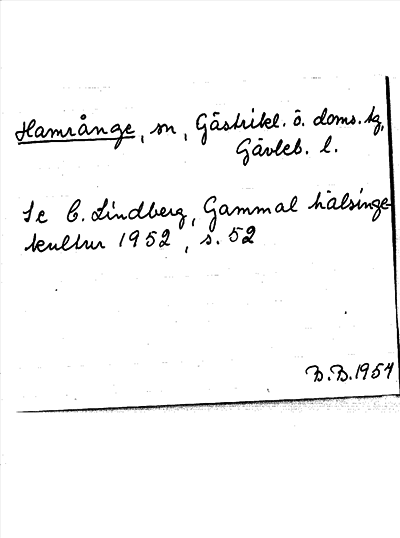 Hamrånge, sn, Gästrikl. ö. doms. tg,
Gävleb. l.
Se C. Lindberg, Gammal hälsinge-
kultur 1952, s. 52
B.B. 1954